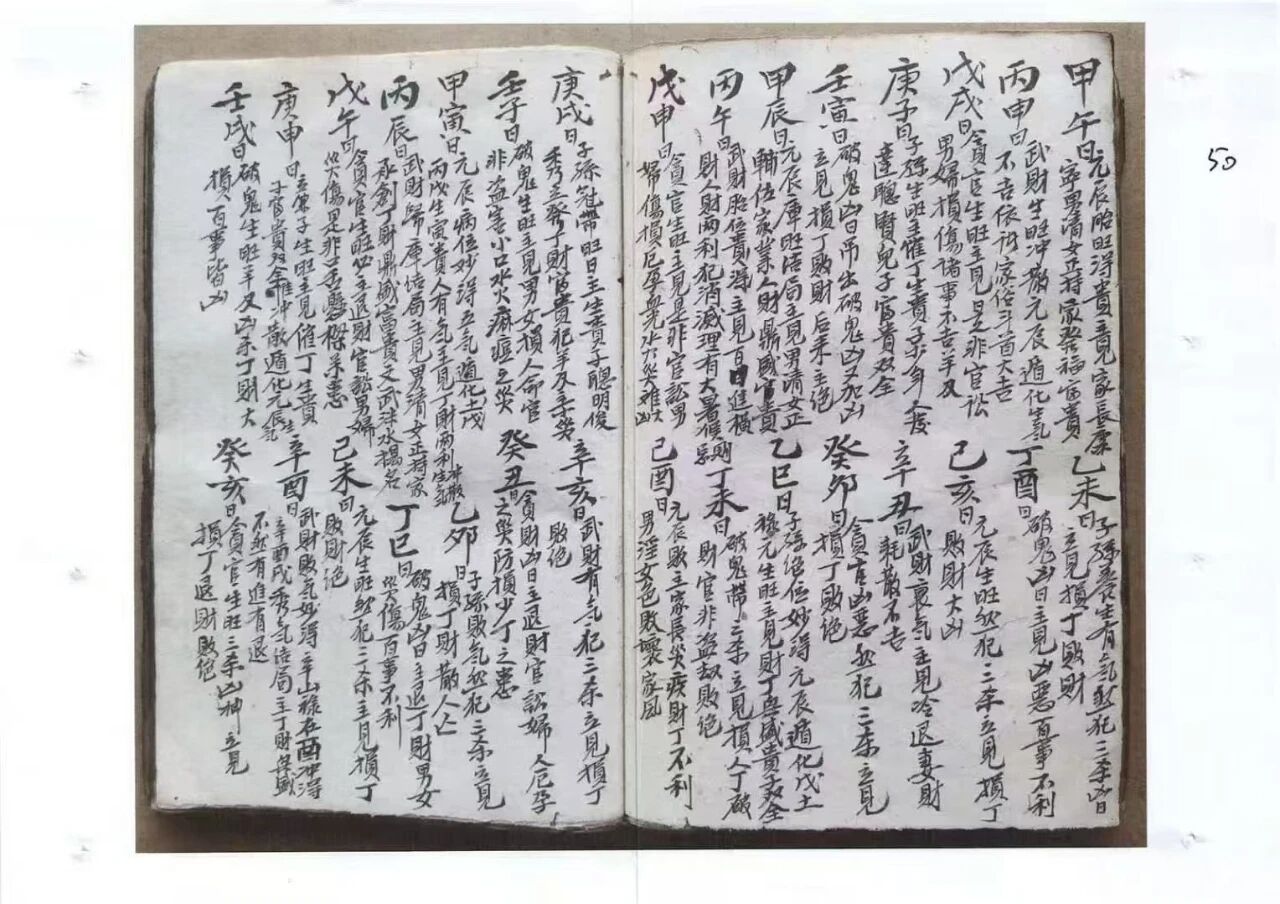 甲午日元辰胎旺得貴主見家長康
寧男清女正持家發福富貴
乙未日子孫養生有氣然犯三杀凶日
立見損丁敗財
丙申日武財生旺冲散元辰遁化生氣
不吉依
丁酉日破鬼凶日主見凶惡百事不利
戊戌日貪官生旺主見是非官讼
男婦損傷諸事不吉羊及
己亥日元辰生旺然犯三杀立見損丁
敗財大凶
庚子日子孫生旺主催丁生貴子
達聰賢兒子富貴双全
辛丑日武財衰氣主見冷退妻財
耗散不吉
壬寅日破鬼凶日吊出破鬼凶又加凶
立見損丁敗財后来主绝
癸卯日貪官凶惡然犯三杀立見
損丁敗绝
甲辰日元辰庫旺结局主見男清女正
輔位家業人財鼎盛富貴
乙巳日子孫绝位妙得元辰遁化戊土
祿元生旺主見財丁興盛貴子双全
丙午日武財胎位貴得主見百日進橫
財人財兩利犯消滅理有大暑候
丁未日破鬼帶三杀主見損人丁破
財官非盗劫敗绝
戊申日貪官生旺主見是非官讼男
婦傷損厄孕
己酉日元辰敗主家長災疾財丁不利
男淫女色敗壞家風
庚戌日子孫冠帶旺日主生貴子聰明俊
秀主發丁財富貴犯羊及主災
辛亥日武財有氣犯三杀立見損丁
敗绝
壬子日破鬼生旺主見男女損人命官
非盗害小口水火麻痘之災
癸丑日貪財凶日主退財官訟婦人厄孕
之災防損少丁之患
甲寅日元辰病位妙得五氣遁化土戊
丙戌生寅貴人有氣主見丁財兩利
乙卯日子孫敗氣然犯三杀立見
損丁財散人亡
丙辰日武財歸庫结局主見男清女正持家
承創丁財鼎盛富貴文武
丁巳日破鬼凶日主退丁財男女
災傷百事不利
戊午日貪官生旺必主退財官訟男婦
災傷是非
己未日元辰生旺然犯三杀主見損丁
敗財绝
庚申日主
辛酉日武財敗氣妙得辛山祿在酉冲得
辛酉戌秀氣结局主丁財興盛
不然有進有退
壬戌日破鬼生旺羊及凶杀丁財大
損百事皆凶
癸亥日貪官生旺三杀凶神立見
損丁退財敗绝
50